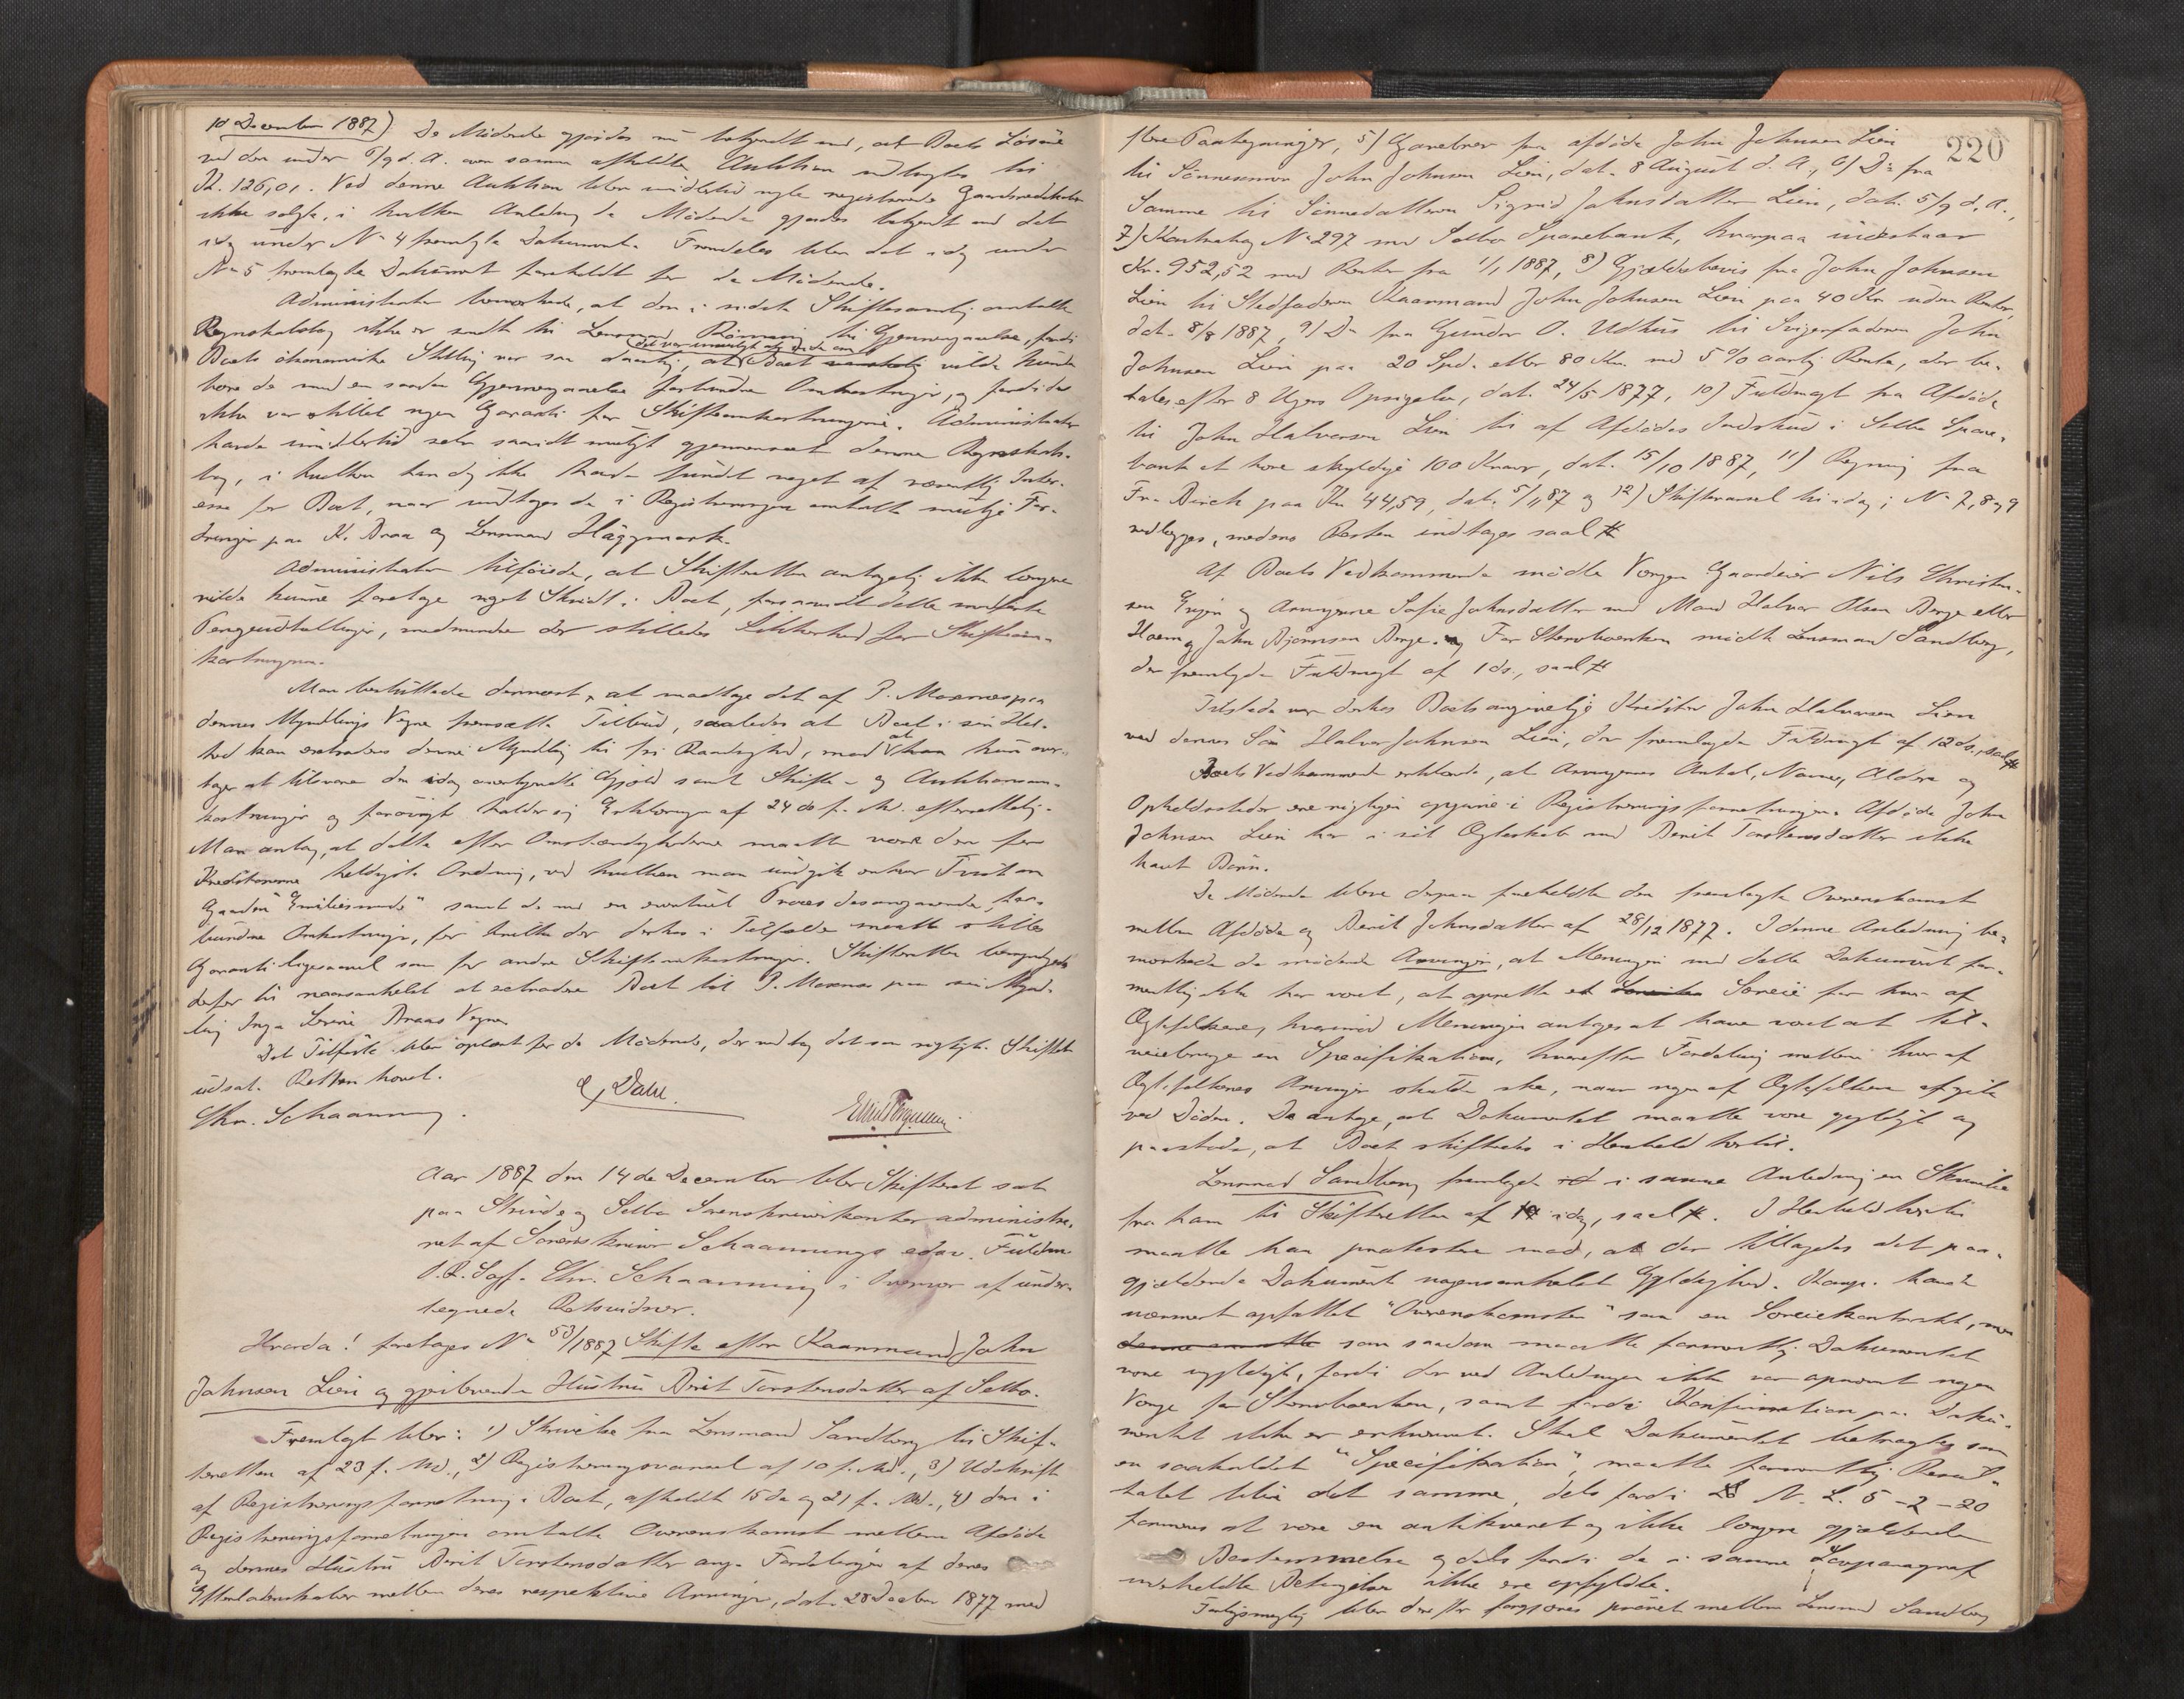 10 December 1887) De Mödende gjordes nu bekjendt med, at Boets Lösöre
ved den under 6/9 d. A. over samme afholdte Auktion udbragtes til
Kr. 126,01. Ved denne Auktion blev imidlertid nogle registrerede Gaardsredskaber
ikke solgte, i hvilken Anledning de Mödende gjordes bekjendt med det
idag under No 4 fremlagte Dokument. Fremdeles blev det idag under
No 5 fremlagte Dokument foreholdt for de Mödende.
Administrator bemærkede, at den i sidste Skiftesamling omtalte
Regnskabsbog ikke er sendt til Lensmand til Gjennemgaaelse, fordi
det var umuligt at vide om
Boets ökonomiske Stilling var saa daarlig, at Boet vilde kunde
bære de med en saadan Gjennemgaaelse forbundne Omkostninger, og fordi der
ikke var stillet nogen Garanti for Skifteomkostningerne. Administrator
havde imidlertid selv saavidt muligt gjennemseet denne Regnskabs-
bog, i hvilken han dog ikke havde fundet noget af væsentlig Inter-
esse for Boet, naar undtages de i Registreringen omtalte mulige For-
dringer paa K. Braa og Lensmand Häggmark.
Administrator tilföiede, at Skifteretten antagelig ikke længere
vilde kunne foretage noget Skridt i Boet, forsaavidt dette medförte
Pengeudtællinger, medmindre der stilledes Sikkerhed for Skifteom-
kostningerne.
Man besluttede dernæst, at modtage det af P. Moxnes paa
dennes Myndlings Vegne fremsatte Tilbud, saaledes at Boet i sin Hel-
hed kan extraderes denne Myndling til fri Raadighed, mod at hun over-
tager at tilsvare den idag anerkjendte Gjæld samt Skifte- og Auktionsom-
kostninger og forövrigt holder sig Erklæringen af 24 de f. M. efterrettelig.
Man antog, at dette efter Omstændighederne maatte være den for
Kreditorerne heldigste Ordning, ved hvilken man undgik enhver Tvist om
Gaarden "Emiliesminde" samt de med en eventuel Proces desangaaende for-
bundne Omkostninger, for hvilke der derhos i Tilfælde maatte stilles
Garanti ligesaavel som for andre Skifteomkostninger. Skifteretten
derfor til naarsomhelst at extradere Boet til P. Moxnes paa sin Mynd-
ling Inga Lovise Braas Vegne
Det Tilförte blev oplæst for de Mödende, der vedtog det som rigtigt. Skiftet
udsat. Retten hævet.
Chr. Schaanning. Dahl.
Aar 1887 den 14 de December blev Skifteret sat
paa Strinde og Selbo Sorenskriverkontor administre-
ret af Sorenskriver Schaannings edsv. Fuldm.
O. R. Sagf. Chr. Schaanning i Overvær af under-
tegnede Retsvidner.
Hvorda! foretoges No 53/1887 Skifte efter Kaarmand John
Johnsen Lien og gjenlevende Hustru Berit Torstensdatter af Selbo.
Fremlagt blev: 1) Skrivelse fra Lensmand Sandberg til Skif-
teretten af 23 f. Md., 2) Registreringsvarsel af 10 f. Md., 3) Udskrift
af Registreringsforretning i Boet, afholdt 15 de og 21 f. Md., 4) den i
Registreringsforretningen omtalte Overenskomst mellem Afdöde
og dennes Hustru Berit Torstensdatter ang. Fordelingen af deres
Efterladenskaber mellem deres respektive Arvinger, dat. 28 December 1877 med
220
flere Paategninger, 5) Gavebrev fra afdöde John Johnsen Lien
til Sönnesönnen John Johnsen Lien, dat. 8 August d. A., 6) Do fra
Samme til Sönnedatteren Sigrid Johnsdatter Lien, dat. 5/9 d. A.,
7) Kontrabog No 297 med Selbo Sparebank, hvorpaa indestaar
Kr. 952,52 med Renter fra 1/1 1887, 8) Gjældsbevis fra John Johnsen
Lien til Stedfaderen Kaarmand John Johnsen Lien paa 40 Kr. uden Renter,
dat. 8/8 1887, 9) Do fra Gunder O. Udhus til Svigerfaderen John
Johnsen Lien paa 20 Spd. eller 80 Kr. med 5% aarlig Rente, der be-
tales efter 8 Ugers Opsigelse, dat. 24/5 1877, 10) Fuldmagt fra Afdöde
til John Halvorsen Lien til af Afdödes Indskud i Selbo Spare-
bank at hæve skyldige 100 Kroner, dat. 15/10 1887, 11) Regning fra
Fr. Birch paa Kr. 44,59, dat. 5/11 87 og 12) Skiftevarsel til idag; No 7, 8 og 9
vedlægges, medens Resten indtages saal #
Af Boets Vedkommende mödte Værgen Gaardeier Nils Christen-
sen og Arvingerne Sofie Johnsdatter med Mand Halvor Olsen Berge eller
Hoem og John Bjørnsen Berge. For Stervboenken mödte Lensmand Sandberg,
der fremlagde Fuldmagt af 1 ds., saal #
Tilstede var derhos Boets angivelige Kreditor John Halvorsen Lien
ved dennes Sön Halvor Johnsen Lien, der fremlagde Fuldmagt af 12 ds., saal #
Boets Vedkommende erklærede, at Arvingernes Antal, Navne, Aldere og
Opholdssteder ere rigtigen opgivne i Registreringsforretningen. Afdöde John
Johnsen Lien har i sit Ægteskab med Berit Torstensdatter ikke
havt Börn.
De Mödende bleve derpaa foreholdte den fremlagte Overenskomst
mellem Afdöde og Berit Johnsdatter af 28/12 1877. I denne Anledning be-
mærkede de mödende Arvinger, at Meningen med dette Dokument for-
mentlig ikke har været, at oprette et Særeie for hver af
Ægtefolkene, hvorimod Meningen antages at have været at til-
veiebringe en Specifikation, hvorefter Fordeling mellem hver af
Ægtefolkenes Arvinger skulde ske, naar nogen af Ægtefolkene afgik
ved Döden. De antage, at Dokumentet maatte være gyldigt og
paastode, at Boet skiftedes i Henhold hertil.
Lensmand Sandberg fremlagde i samme Anledning en Skrivelse
fra ham til Skifteretten af idag, saal #. I Henhold hertil
maatte han protestere mod, at der tillagdes det paa-
gjældende Dokument nogensomhelst Gyldighed. Komp. havde
nærmest opfattet "Overenskomsten" som en Særeiekontrakt, men
som saadan maatte formentlig Dokumentet
være ugyldigt, fordi der ved Anledningen ikke var opnævnt nogen
Værge for Stervboenken, samt fordi Konfirmation paa Doku-
mentet ikke er erhvervet. Skal Dokumentet betragtes som
en saakaldet "Specifikation", maatte formentlig Resul-
tatet blive det samme, dels fordi N. L. 5-2-20
formenes at være en antikveret og ikke længere gjældende
Bestemmelse og dels fordi de i samme Lovparagraf
indeholdte Betingelser ikke ere opfyldte.
Forligsmægling blev derefter forgjæves prövet mellem Lensmand Sandberg